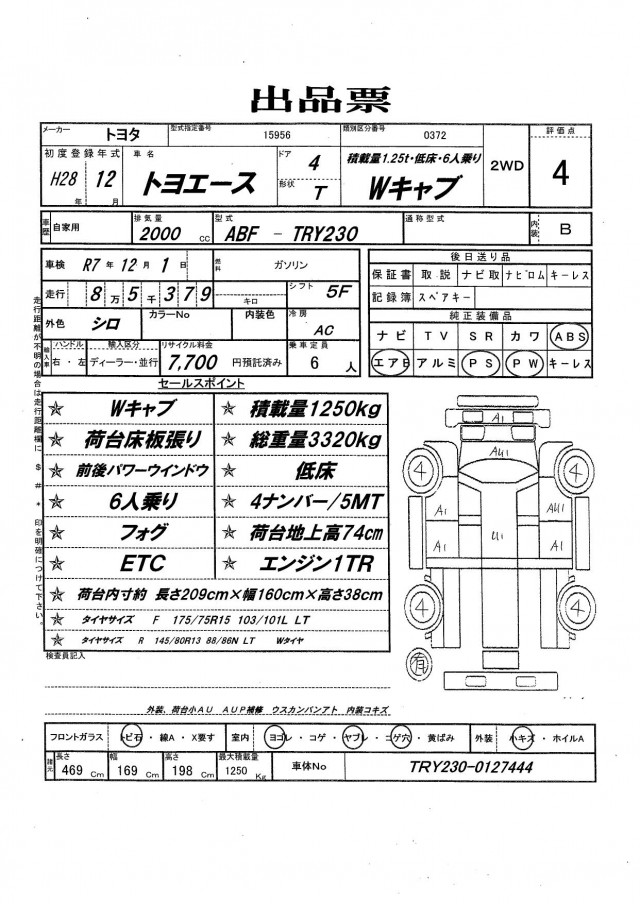 出品票
メーカー トヨタ 型式指定番号 15956 類別区分番号 0372 評価点
初度登録年式 車名 ドア 4 積載量1.25t・低床・6人乗り 2WD 4
H28年 12月 トヨエース 形状 T Wキャブ
車歴 自家用 排気量 2000 cc 型式 ABF - TRY230 通称型式 内装 B
車検 R7年 12月 1日 燃料 ガソリン
走行 8万5千379 キロ シフト 5F
外色 シロ カラーNo 内装色 冷房 AC
輸入車 ハンドル 右・左 輸入区分 ディーラー・並行 リサイクル料金 7,700 円預託済み 乗車定員 6人
後日送り品
保証書 取説 ナビ取 ナビロム キーレス
記録簿 スペアキー
純正装備品
ナビ TV SR カワ ABS
エアB アルミ PS PW キーレス
走行距離が不明の場合は走行距離欄に $ # * 印を明確につけて下さい。
セールスポイント
☆ Wキャブ ☆ 積載量1250kg
☆ 荷台床板張り ☆ 総重量3320kg
☆ 前後パワーウインドウ ☆ 低床
☆ 6人乗り ☆ 4ナンバー/5MT
☆ フォグ ☆ 荷台地上高74cm
☆ ETC ☆ エンジン1TR
☆ 荷台内寸約 長さ209cm×幅160cm×高さ38cm
☆ タイヤサイズ F 175/75R15 103/101L LT
☆ タイヤサイズ R 145/80R13 88/86N LT Wタイヤ
A1
4 AU1 4
A1 U1 AU1
A1 A1
4 4
有
検査員記入
外装、荷台小AU AUP補修 ウスカンバンアト 内装コキズ
フロントガラス トビ石・線A・X要す 室内 ヨゴレ・コゲ・ヤブレ・コゲ穴・黄ばみ 外装 小キズ・ホイルA
諸元 長さ 469 Cm 幅 169 Cm 高さ 198 Cm 最大積載量 1250 Kg 車体No TRY230-0127444